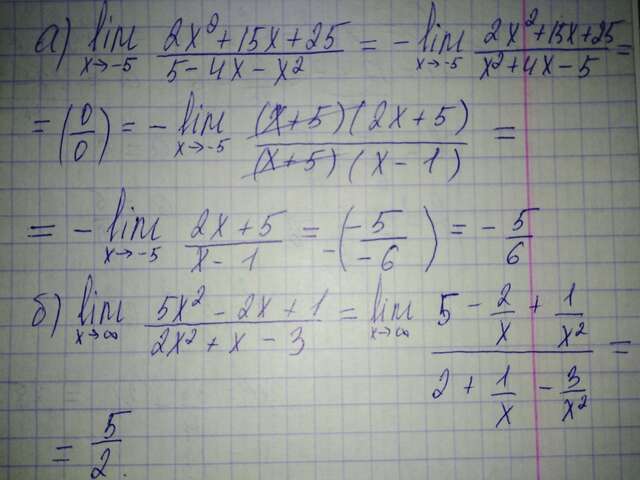 а) lim x→-5 (2x²+15x+25)/(5-4x-x²) = -lim x→-5 (2x²+15x+25)/(x²+4x-5) =
= (0/0) = -lim x→-5 ((x+5)(2x+5))/((x+5)(x-1)) =
= -lim x→-5 (2x+5)/(x-1) = -(-5/-6) = -5/6
б) lim x→∞ (5x²-2x+1)/(2x²+x-3) = lim x→∞ (5 - 2/x + 1/x²)/(2 + 1/x - 3/x²) =
= 5/2.